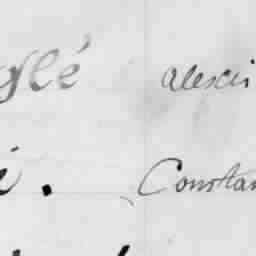 glé Alexis
é. Constan